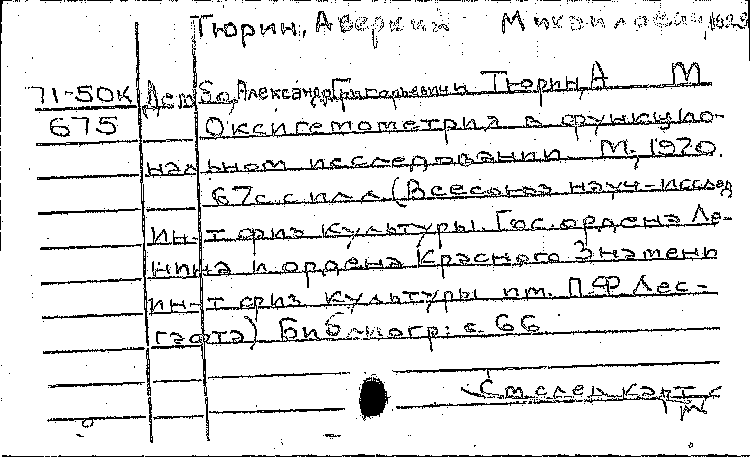 Тюрин, Аверкий Михайлович, 1923
71-50К Дембо, Александр Григорьевич и Тюрин, А М
675 Оксигемометрия в функцио-
нальном исследовании. М, 1970.
67с. с илл (Всесоюз науч-исслед
ин-т физ культуры. Гос. ордена Ле-
нина и ордена Красного Знамени
ин-т физ культуры им. П.Ф Лес-
гафта) Библиогр: с 66.
См след карт